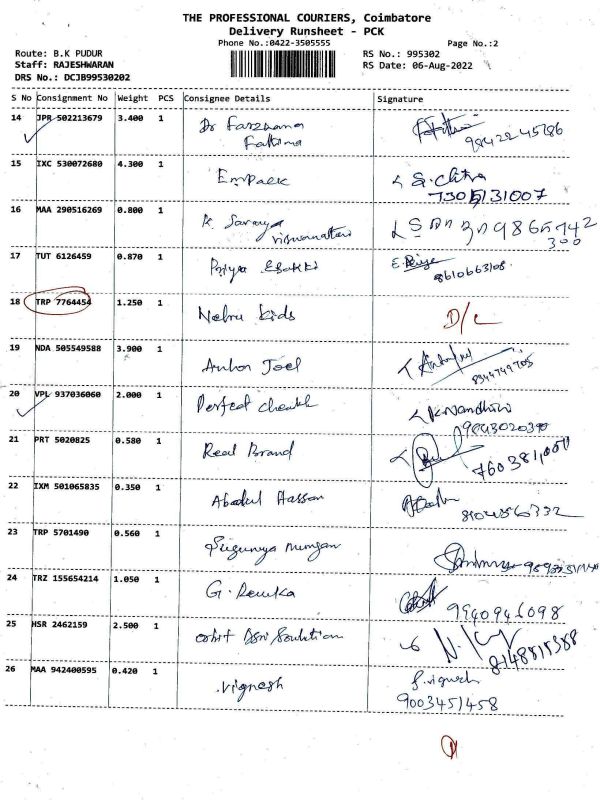 THE PROFESSIONAL COURIERS, Coimbatore
Delivery Runsheet - PCK
Phone No.:0422-3505555 Page No.:2
Route: B.K PUDUR RS No.: 995302
Staff: RAJESHWARAN RS Date: 06-Aug-2022
DRS No.: DCJB99530202
S No Consignment No Weight PCS Consignee Details Signature
14 JPR 502213679 3.400 1 Dr Farzhana
Fathima
15 IXC 530072680 4.300 1 Empack S. Chitra
7305131007
16 MAA 290516269 0.800 1 K. Saranya
viswanathan
300
17 TUT 6126459 0.870 1 Priya Esakki E. Priya
8610663108
18 TRP 7764454 1.250 1 Nehru kids D/C
19 NDA 505549588 3.900 1 Joel
8344749705
20 VPL 937036060 2.000 1 Perfect K. Nandhini
21 PRT 5020825 0.580 1 Real Brand
22 IXM 501065835 0.350 1 Abdul Hassan
23 TRP 5701490 0.560 1
24 TRZ 155654214 1.050 1 G. Renuka
9940946098
25 HSR 2462159 2.500 1
8148815388
26 MAA 942400595 0.420 1 Vignesh
9003451458